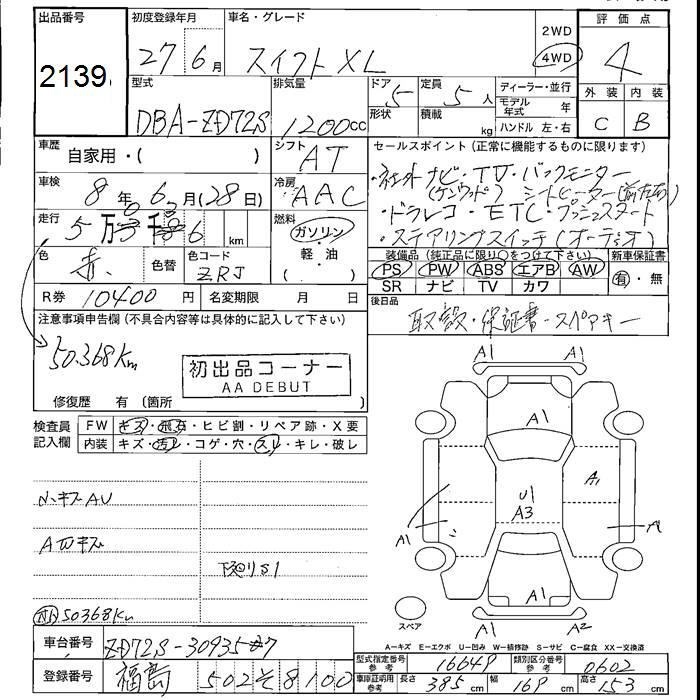 出品番号
2139
初度登録年月
27 6月
車名・グレード
スイフト XL
2WD
4WD
評価点
4
外装 内装
C B
型式
DBA-ZD72S
排気量
1200cc
ドア 5
形状
定員 5人
積載 kg
ディーラー・並行
モデル年式 年
ハンドル 左・右
車歴
自家用・( )
シフト
AT
車検
8年6月(28日)
冷房
AAC
走行
5万 6 km
燃料
ガソリン
・軽・油
( )
色
赤
色替
色コード
ZRJ
R券 10400円
名変期限 月 日
セールスポイント(正常に機能するものに限ります)
・社外ナビ・TV・バックモニター
(ケンウッド) シートヒーター(前左右)
・ドラレコ・ETC・プッシュスタート
・ステアリングスイッチ(オーディオ)
装備品(純正品に限り○をつけて下さい)
PS PW ABS エアB AW
SR ナビ TV カワ
新車保証書
有・無
後日品
取説・保証書・スペアキー
注意事項申告欄(不具合内容等は具体的に記入して下さい)
50.368Km
初出品コーナー
AA DEBUT
修復歴 有(箇所 )
検査員記入欄
FW キズ・飛石・ヒビ割・リペア跡・X要
内装 キズ・汚レ・コゲ・穴・スレ・キレ・破レ
小キズAU
AWキズ
下廻りS1
50368Km
A1 A1
A1
A1
U1
A3
A1
A1
A1 A2
スペア
A=キズ E=エクボ U=凹み W=補修跡 S=サビ C=腐食 XX=交換済
車台番号
ZD72S-309357
登録番号
福島 502 そ 8100
型式指定番号 参考 16649
類別区分番号 参考 0602
車庫証明用 参考 長さ 385cm 幅 169cm 高さ 153cm